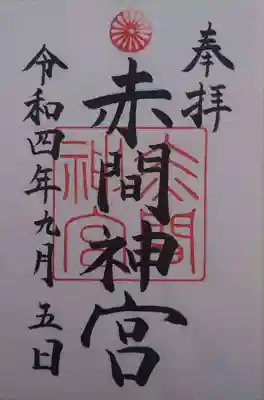 奉拝
赤間神宮
令和四年九月五日
赤間
神宮